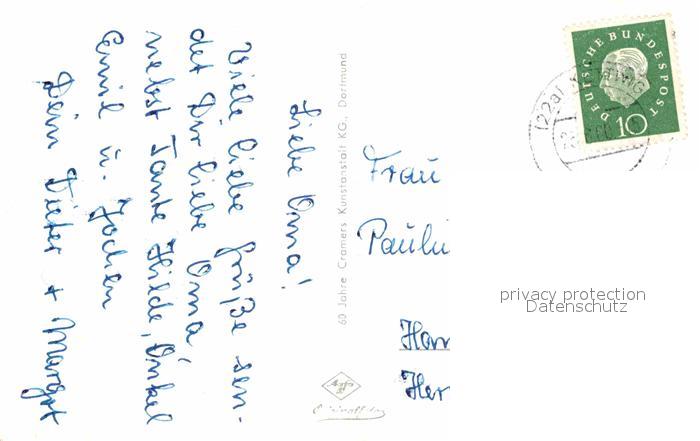 Liebe Oma!
Viele liebe Grüße sen-
det Dir liebe Oma
nebst Tante Hilde, Onkel
Emil u. Jochen
Dein Dieter + Margot
60 Jahre Cramers Kunstanstalt KG., Dortmund
Frau
Pauli
Han
Her
DEUTSCHE BUNDESPOST
10
(22a)
privacy protection
Datenschutz
Agfa